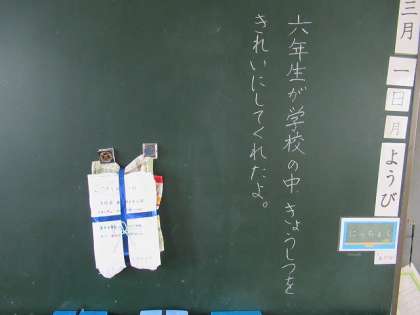 三月
一日
月ようび
六年生が学校の中、きょうしつを
きれいにしてくれたよ。
にっちょく